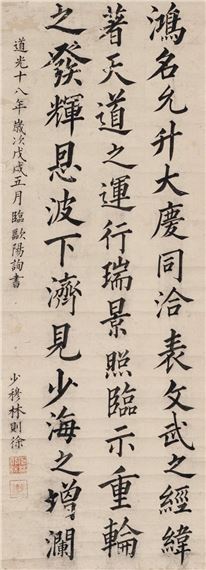 鴻名允升大慶同洽表文武之經緯
著天道之運行瑞景照臨示重輪
之發輝恩波下濟見少海之增瀾
道光十八年歲次戊戌五月臨歐陽詢書
少穆林則徐